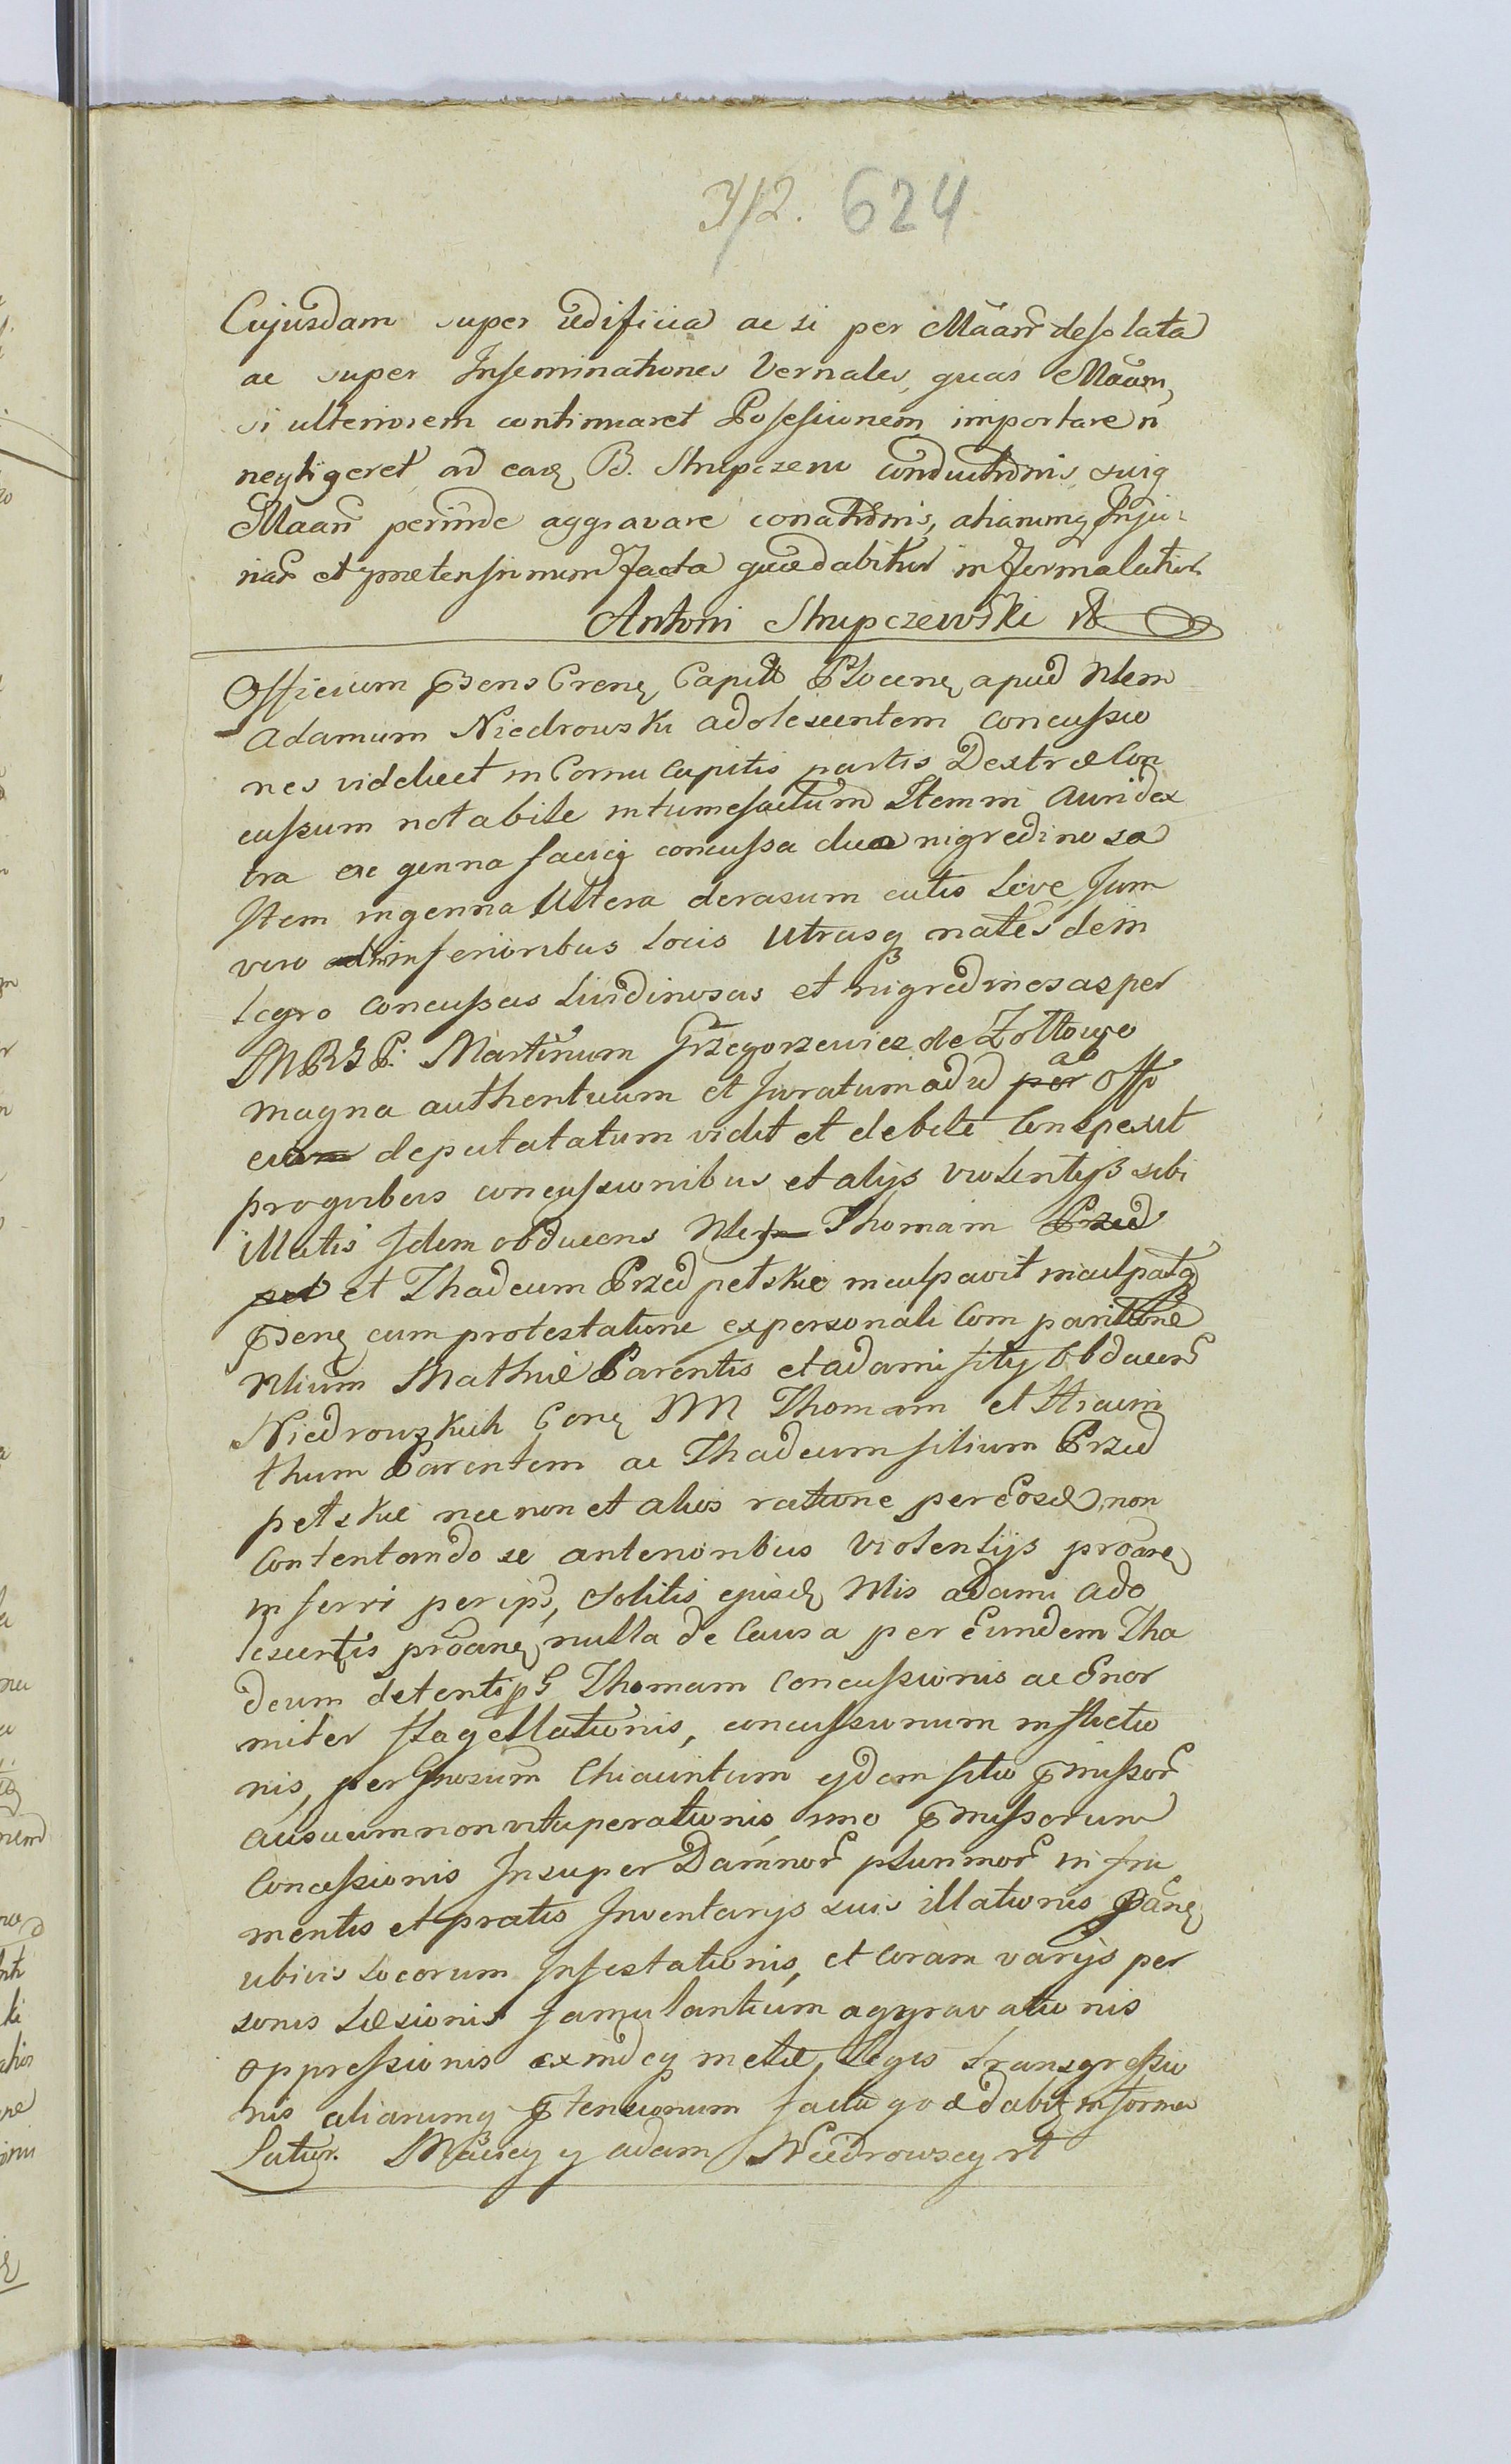 312. 624
Cujusdam super ædificia ac si per Maan desolata
ac super Inseminationes Vernales, quas Maam,
si ulteriorem continuaret Possessionem importare n
negligeret ad eade B. Strupczew conductionis suiq
Maan perinde aggravare conationis, aliarumq Inju-
riar et prætensionum facta quæ dabitur in formalatior
Antoni Strupczewski
Officium Psens Crense Capitt Plocense apud Nlem
Adamum Niedrowski adolescentem concussio
nes videlicet in Cornu Capitis partis Dextræ Con
cussum notabile intumefactum Item in Auri dex
tra ac genna faciei concussa dua nigredinosa
Item in genna Altera derasum cutis Leve, Jum
vero inferioribus Locis Utrasq nates de in
tegro concussas Lividinosas et nigredinesas per
IMRSP. Martinum Grzegorzewicz de Zołtowo
magna authenticum et Juratum ad id per ab Offi
cium deputatatum vidit et debite Conspexit
pro quibus concussionibus et alijs violentijs sibi
illatis Idem obducens Nlem Thomam Przed
pet et Thadeum Przedpetskie inculpavit inculpatq
Psens cum protestatione ex personali Comparitione
Nlium Mathiæ Parentis et adami filij Obducens
Niedrowskich Cone IMM Thomam et Hiacin
thum Parentem ac Thadeum filium Przed
petskie nec non et alios ratione per Eosd non
Contentando se anterioribus Violentijs proane
inferri per ips, Solitis ejusd Nlis adami ado
lescentis proane nulla de Causa per Eundem Tha
deum detenti p G Thomam Concussionis ac Enor
miter flagellationis, concussionum inflictio
nis, per Gnosum Chiacintum ejdem filio pmissor
ausuum non vituperationis, imo pmissorum
Concessionis Insuper Damnor plurimor in fru
mentis et pratis Inventarijs suis illationis pane
ubivis Locorum Infestationis, et Coram varijs per
sonis Læsionis famulantium aggravationis
oppressionis exindeq metæ, Legis transgressio
nis aliarumq ptensionum facta quæ dabit in forma
latior. Maciey y adam Niedrowscy